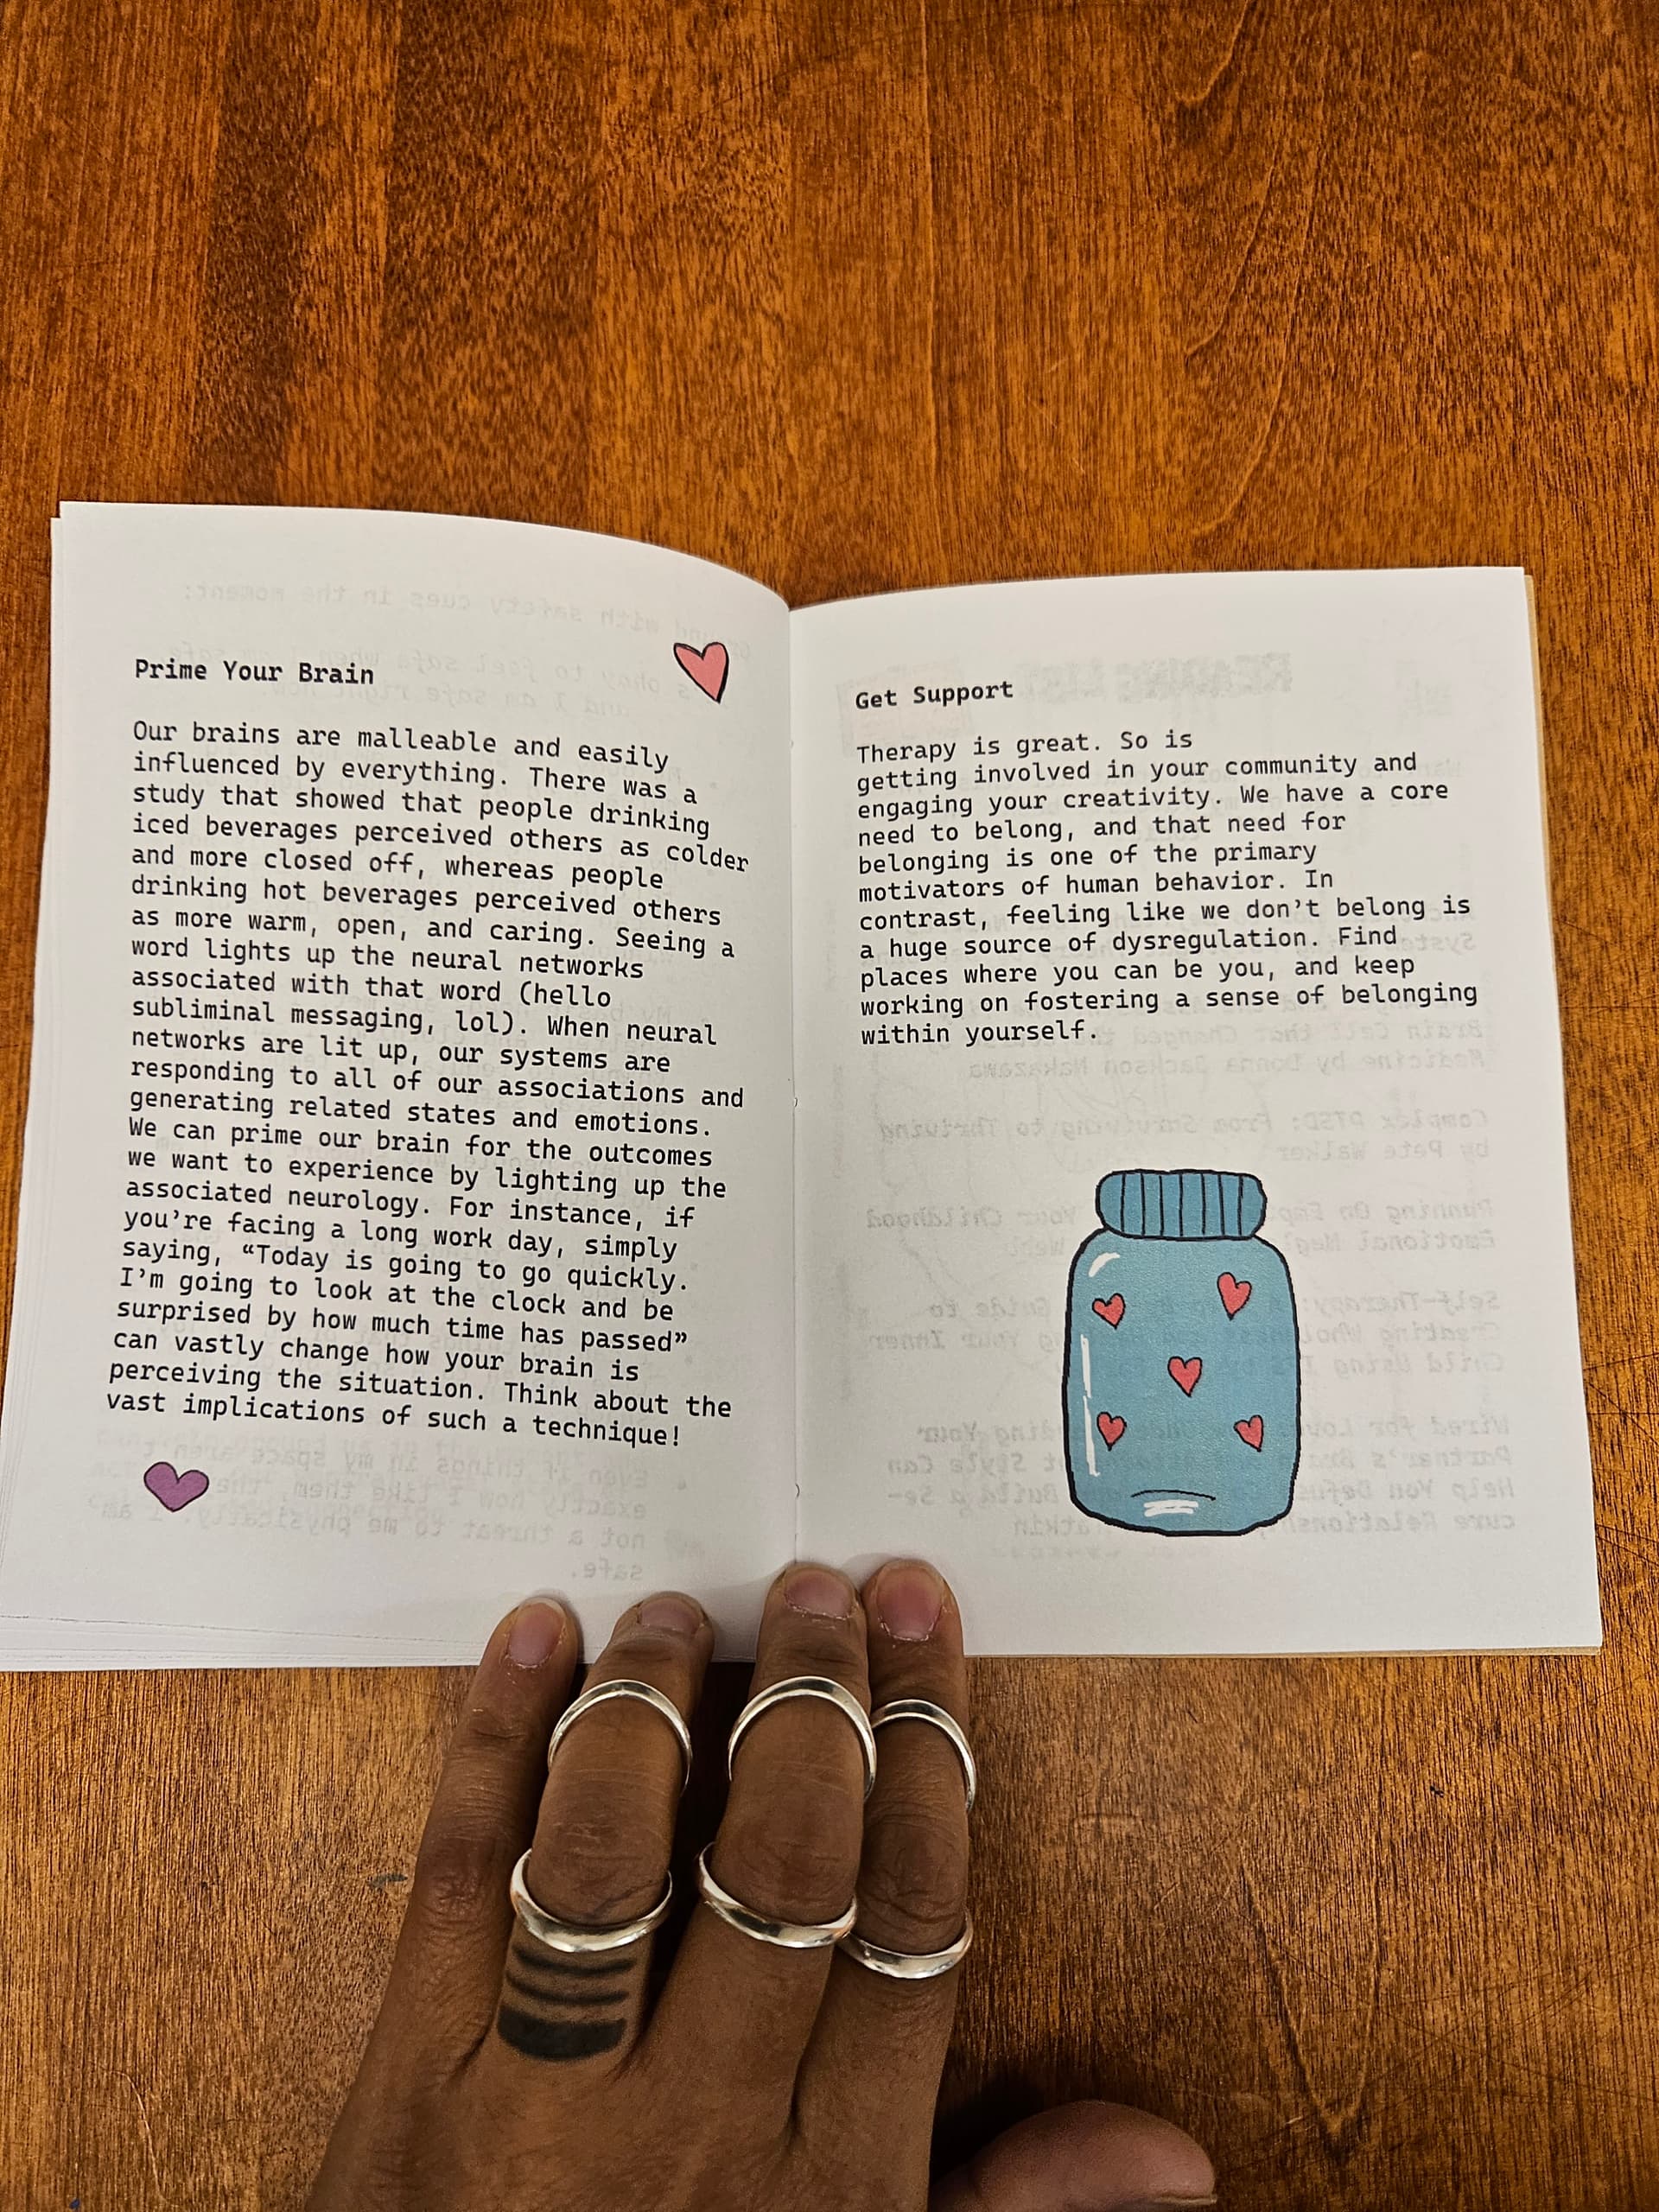 Prime Your Brain
Our brains are malleable and easily
influenced by everything. There was a
study that showed that people drinking
iced beverages perceived others as colder
and more closed off, whereas people
drinking hot beverages perceived others
as more warm, open, and caring. Seeing a
word lights up the neural networks
associated with that word (hello
subliminal messaging, lol). When neural
networks are lit up, our systems are
responding to all of our associations and
generating related states and emotions.
We can prime our brain for the outcomes
we want to experience by lighting up the
associated neurology. For instance, if
you're facing a long work day, simply
saying, “Today is going to go quickly.
I'm going to look at the clock and be
surprised by how much time has passed”
can vastly change how your brain is
perceiving the situation. Think about the
vast implications of such a technique!
Get Support
Therapy is great. So is
getting involved in your community and
engaging your creativity. We have a core
need to belong, and that need for
belonging is one of the primary
motivators of human behavior. In
contrast, feeling like we don't belong is
a huge source of dysregulation. Find
places where you can be you, and keep
working on fostering a sense of belonging
within yourself.